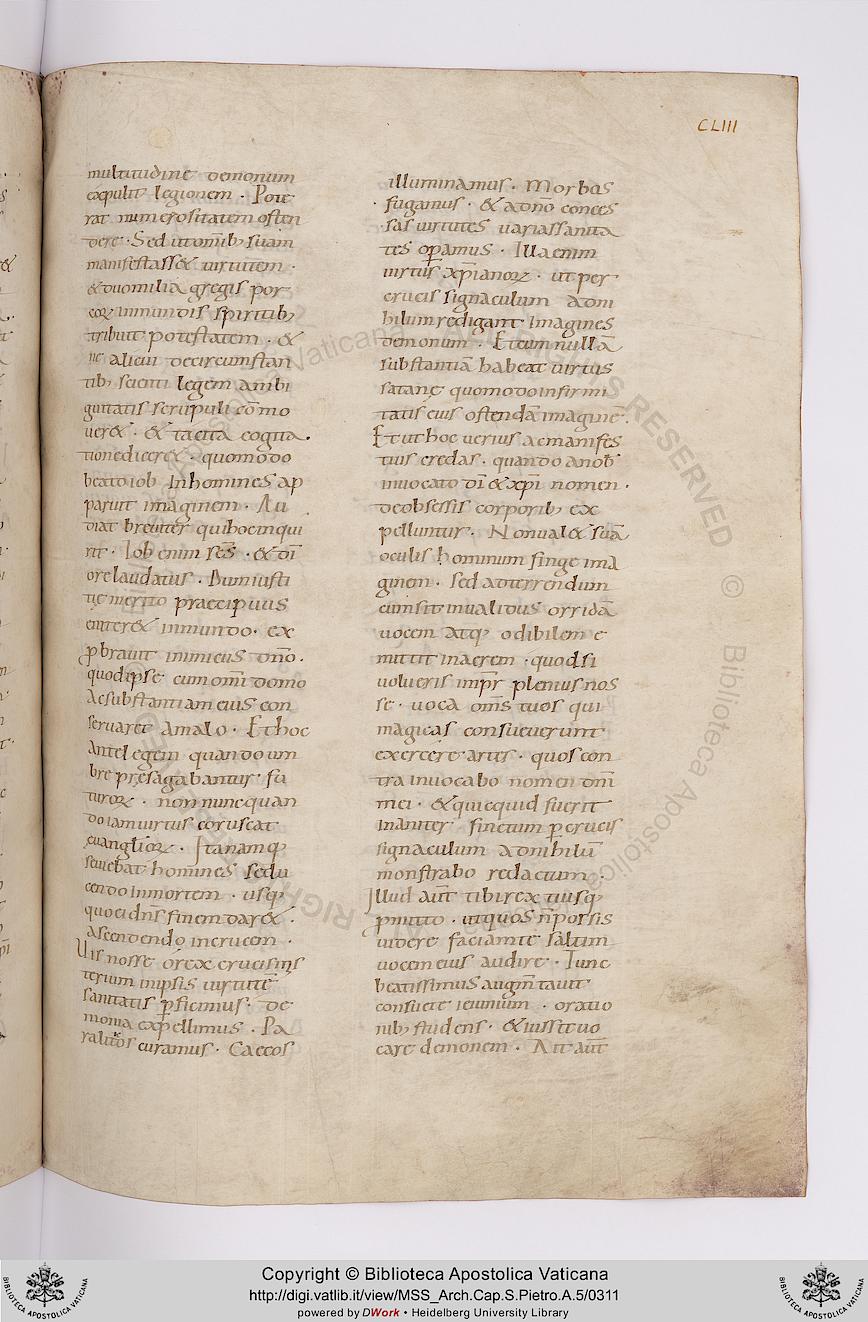 CLIII
multitudine demonum
expulit legionem · Pote
rat numerositatem osten
dere · Sed ut omib; suam
manifestass& virtutem ·
& duo milia gregis por
corꝝ inmundis spiritib;
tribuit potestatem · &
ne alicui de circumstan
tib; scienti legem ambi
guitatis scrupuli cōmo
uer& · & tacita cogita ·
tione dicer& · quomodo
beato iob Inhomines ap
paruit imaginem · Au
diat breviter qui hoc inqui
rit · Iob enim scs̄ · & dī
ore laudatus · Dum iusti
tię merito praecipuus
eniter& in mundo · ex
ꝓbravit inimicus dn̄o ·
quod ipse cum omī domo
Ac substantiam eius con
servaret Amalo · Et hoc
Ante legem quando um
bre pręsagabantur fu
turorꝝ · non nunc quan
do iam virtus coruscat
evanglīorꝝ · Ita namq;
seviebat homines sedu
cendo in mortem · usq;
quo eī dn̄s finem dar& ·
Ascendendo in crucem ·
Vis nosse o rex crucis mis
terium in ipsis virtutē
sanitatis ꝓficimus · de
monia expellimus · Pa
raliticos curamus · Caecos
illuminamus · Morbos
fugamus · & a dn̄o conces
sas virtutes varias sanita
tes oꝑamus · Illa enim
virtus xp̄ianorꝝ · ut per
crucis signaculum ad ni
hilum redigant Imagines
demonum · Et cum nullā
substantiā habeat virtus
satanę quomodo infirmi
tatis eius ostendā imaginē ·
Et ut hoc verius ac manifes
tius credas · quando a nob̄
invocato dī & xp̄i nomen ·
de obsessis corporib; ex
pelluntur · Non val& suā
oculis hominum finge ima
ginem · sed ad terrendum
cum sit invalidus orridā
vocem atq; odibilem e
mittit in aerem · quod si
volueris imp̄r plenius nos
se · voca om̄s tuos qui
magicas consueverunt
exercere artes · quos con
tra invocabo nomen dn̄i
mei · & quicquid fuerit
Inaniter finctum ꝑ crucis
signaculum ad nihilū
monstrabo redactum ·
Illud aut̄ tibi rex tuisq;
ꝓmitto · ut quos n̄ possis
videre faciam te saltim
vocem eius audire · Tunc
beatissimus augm̄tavit
consuete ieiunium · oratio
nib; studens · & iussit vo
care demonem · At aut̄
Copyright © Biblioteca Apostolica Vaticana
http://digi.vatlib.it/view/MSS_Arch.Cap.S.Pietro.A.5/0311
powered by DWork • Heidelberg University Library